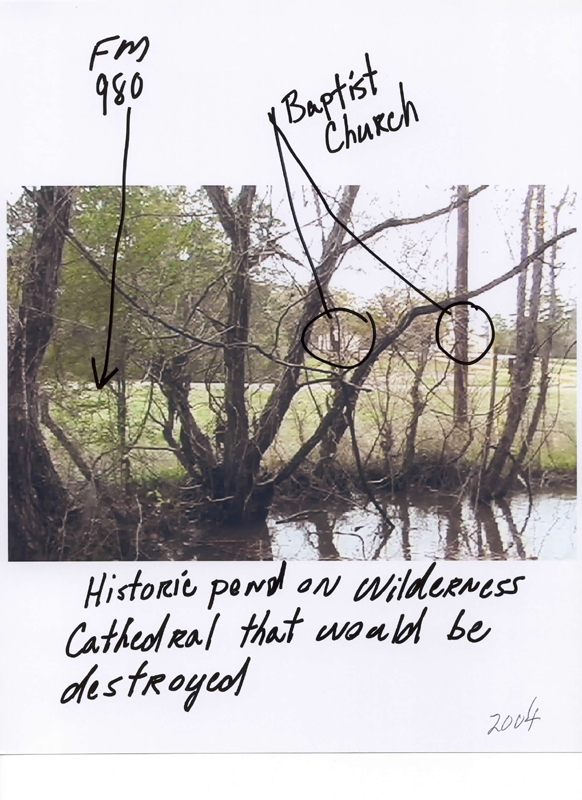 FM
980
Baptist
Church
Historic pond on Wilderness
Cathedral that would be
destroyed
2004